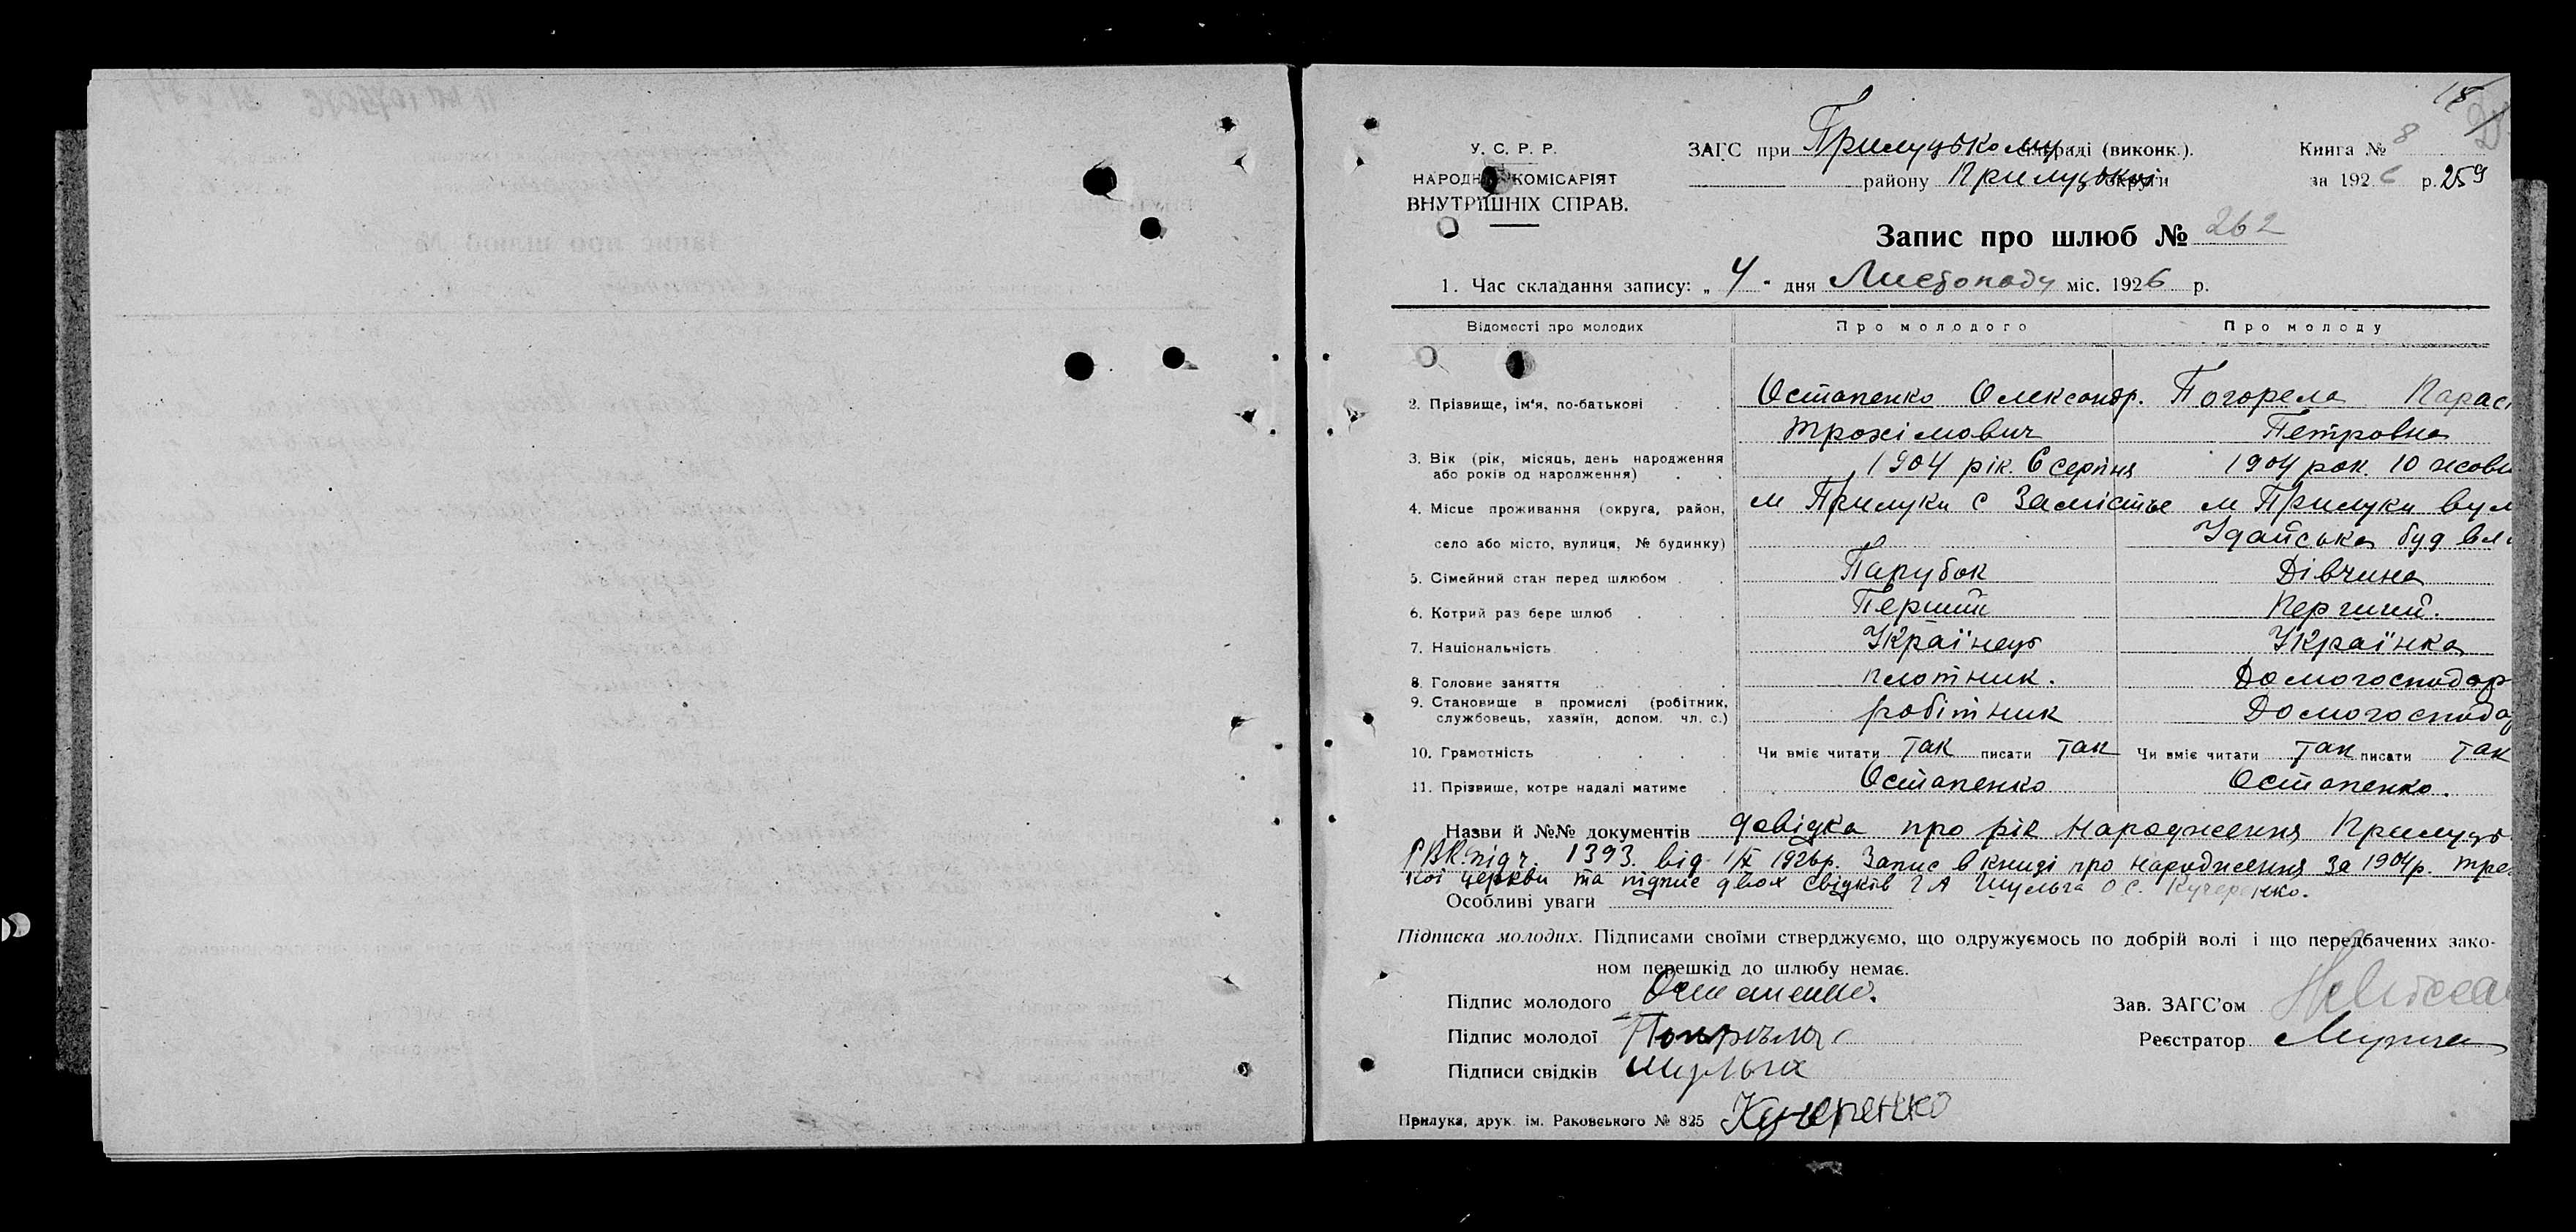 У. С. Р. Р.
НАРОДНІЙ КОМІСАРІЯТ
ВНУТРІШНІХ СПРАВ.
ЗАГС при Прилуцькому раді (виконк.).
району Прилуцької округи
Книга № 8
за 1926 р. 259
Запис про шлюб № 262
1. Час складання запису: „ 4 " дня Листопаду міс. 1926 р.
Відомості про молодих Про молодого Про молоду
2. Прізвище, ім'я, по-батькові Остапенко Олександр. Погорела Парас
Трохімович Петровна
3. Вік (рік, місяць, день народження 1904 рік. 6 серпня 1904 рок. 10 жовт
або років од народження)
4. Місце проживання (округа, район, м Прилуки с Замістье м Прилуки вул
село або місто, вулиця, № будинку) Удайська буд вл
5. Сімейний стан перед шлюбом Парубок Дівчина
6. Котрий раз бере шлюб Перший Перший.
7. Національність Українець Українка
8. Головне заняття плотник. Домогосподар
9. Становище в промислі (робітник, робітник Домогоспода
службовець, хазяїн, допом. чл. с.)
10. Грамотність Чи вміє читати так писати так Чи вміє читати так писати так
11. Прізвище, котре надалі матиме Остапенко Остапенко.
Назви й №№ документів довідка про рік народження Прилуць
РВК. під ч. 1393. від 1/X 1926р. Запис в книзі про народження за 1904р. тре
кої церкви та підпис двох свідків Г А Шульга О С. Кучеренко.
Особливі уваги
Підписка молодих. Підписами своїми стверджуємо, що одружуємось по добрій волі і що передбачених зако-
ном перешкід до шлюбу немає.
Підпис молодого Остапенко.
Зав. ЗАГС'ом
Підпис молодої Погорѣла
Реєстратор
Підписи свідків Шульга
Кучеренко
Прилука, друк. ім. Раковського № 825